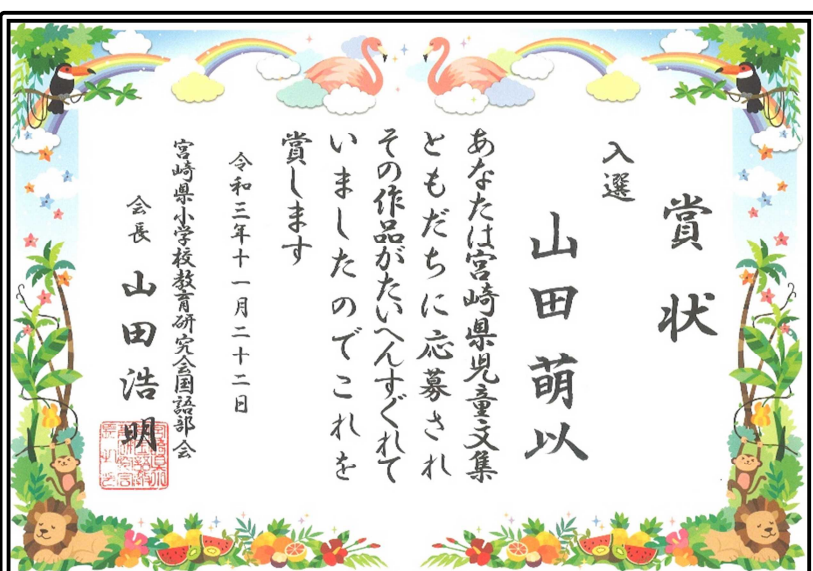 賞状
入選
山田萌以
あなたは宮崎県児童文集
ともだちに応募され
その作品がたいへんすぐれて
いましたのでこれを
賞します
令和三年十一月二十二日
宮崎県小学校教育研究会国語部会
会長 山田浩明